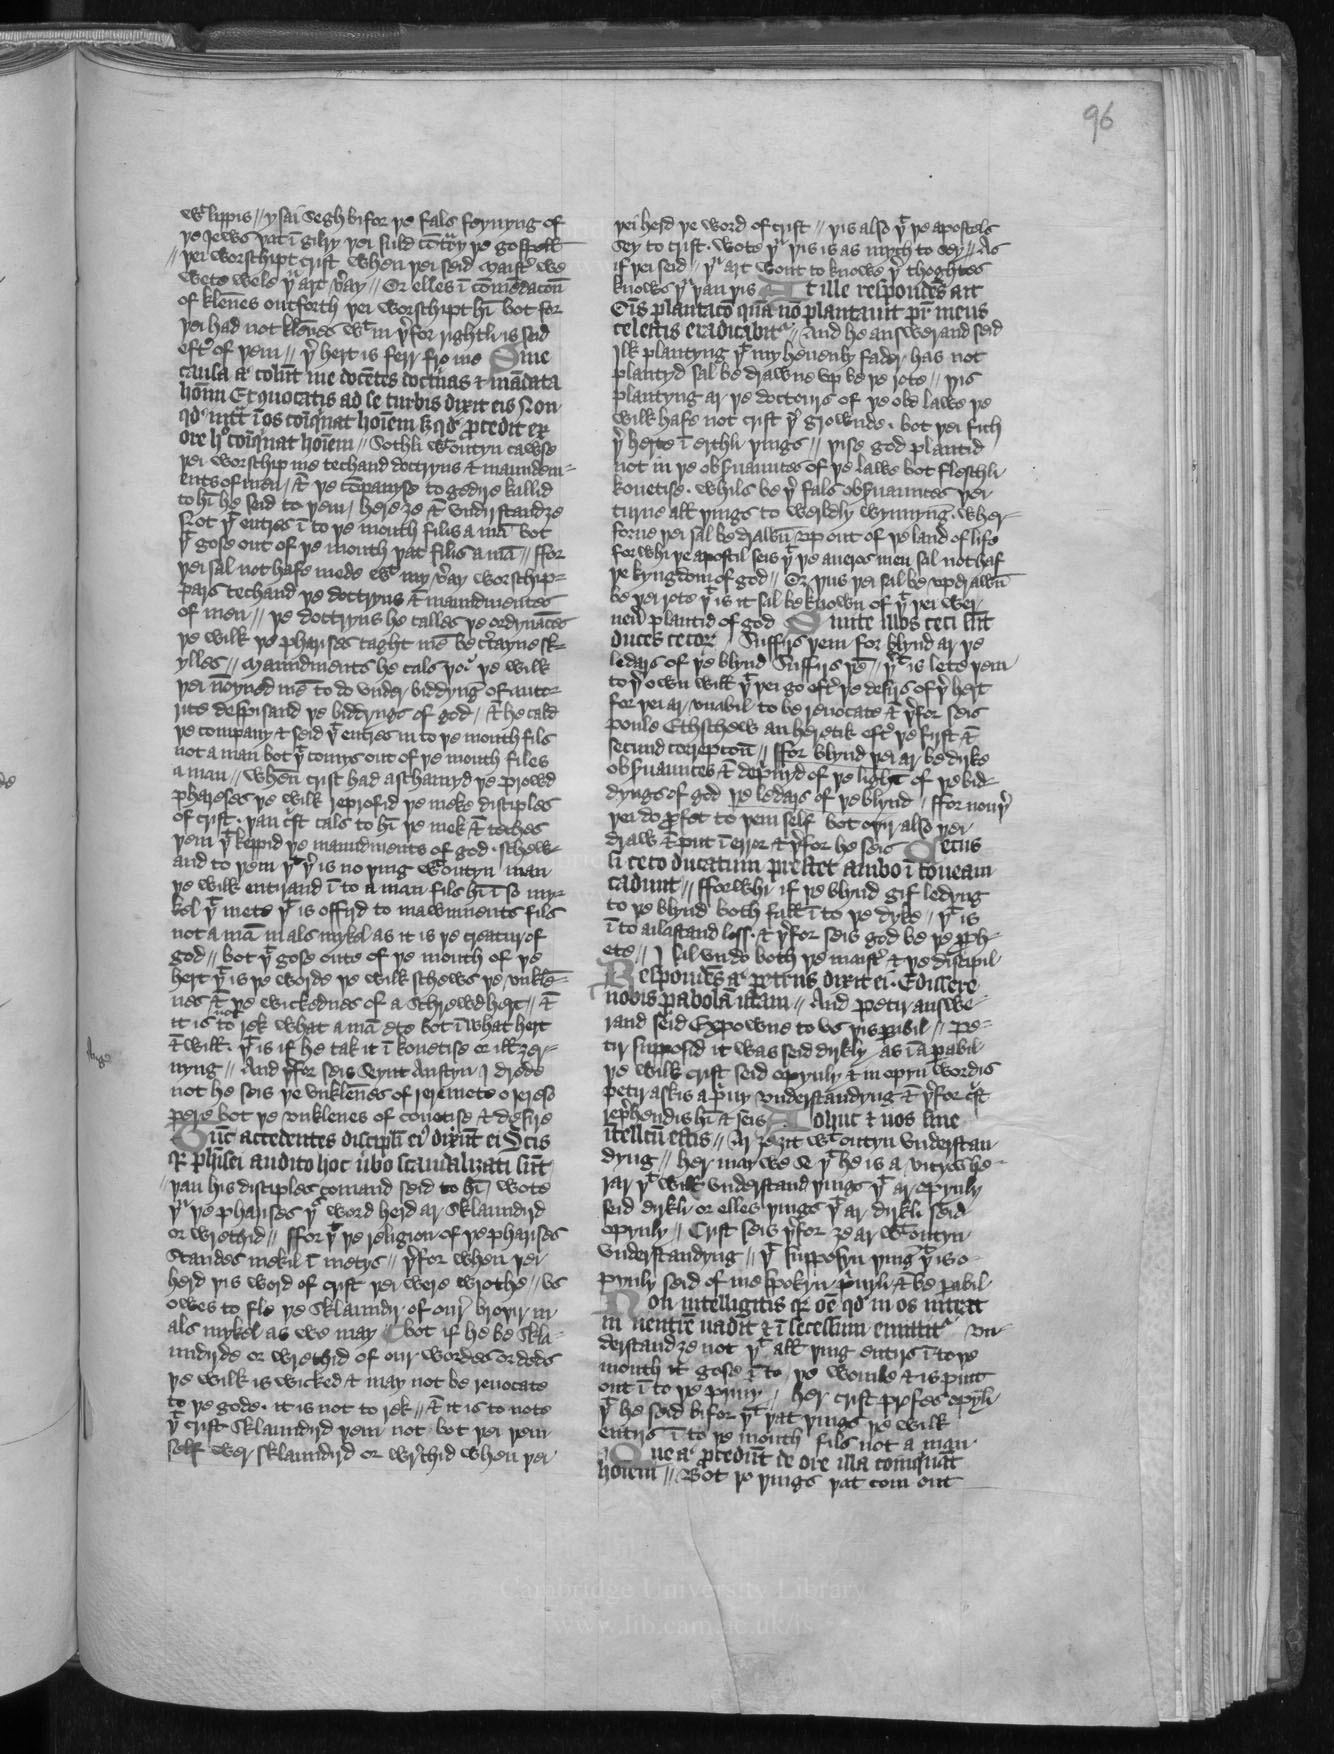 96
wt lippis // ysai segh bifor ye fals feynyng of
ye Jews yat ī gilry yei suld cūtry ye gospell
// yei worschipt crist when yei seid maistr we
wete wele yu art vray // Or elles ī cōmēdacōn
of klenes outforth yei worschipt hī bot for
yei had not klēnes wt in yrfor rightli is seid
eftr of yem // yr hert is ferr fro me Sine
causa ar colūt me docētes doctrinas & mādata
hoīm Et quocatis ad se turbis dixit eis Non
qd intrat ī os coīquīat hoīem sȝ qd procedit ex
ore hoc coīquīat hoīem // Sothli wtoutyn cawse
yei worschip me techand doctryns & maundem=
ents of men / & ye cōpanyse to gedre kallid
to hī he seid to yem / here ze & vndirstand ze
Not yt entres ī to ye mouth filis a mā bot
yt gose out of ye mouth yat filis a mā // ffor
yei sal not hafe mede wt my vray worschip=
pars techand ye doctryns & maundmentes
of men // ye doctryns he calles ye ordynāces
ye wilk ye pharises taght mē be certayne sk=
ylles // Maundments he cals yor ye wilk
yei nōyned mē to do vndr biddyng of auto=
rite despisand ye biddyngs of god / & he cald
ye company & seid yt entres in to ye mouth fils
not a man bot yt comys out of ye mouth files
a man // when crist had aschamyd ye prowd
phareses ye wilk reprofid ye meke disciples
of crist . yan crist cals to hī ye mek & teches
yem yt kepid ye maundments of god . schew=
and to yem yt yr is no ying wtoutyn man
ye wilk entirand ī to a man fils hī ī so my=
kel yt mete yt is offyrd to mawmments fils
not a mā in als mykel as it is ye creatur of
god // bot yt gose oute of ye mouth of ye
hert yt is ye worde ye wilk schews ye vnklē=
nes & ye wickednes of a schrewd hert // &
it is not to rek what a mā ete bot ī what hert
& will . yt is if he tak it ī kouetise or ill zer=
nyng // And yrfor seis Seynt Austyn I drede
not he seis ye vnklēnes of
bot ye vnklenes of couetise & desire
Tūc accedentes discipli eius dixūt ei Scis
qr pharisei audito hoc vbo scandalizati sūt
// yan his disciples comand seid to hī / wote
yu ye pharises yt word herd ar sklaundird
or wrethid // ffor yt ye religion of ye pharises
standes mekil ī metys // yrfor when yei
herd yis word of crist yei were wrothe // vs
owes to fle ye sklaundir of our broyir in
als mykel as we may bot if he be skla=
undirde or wrethid of our wordes or deds
ye wilk is wicked & may not be reuocate
to ye gode . it is not to rek // & it is to note
yt crist sklaundird yem not bot yei yem
self wer sklaundird or wrethid when yei
yei herd ye word of crist // yis also yt ye apostels
sey to crist . wote yu yis is as mych to sey // As
if yei seid // yu art wont to knowe yr thoghtes
knows yu yan yis At ille respondēs ait
Oīs plantacō quā nō plantauit pr meus
celestis eradicabitr // And he answerand seid
Ilk plantyng yt my heuenly fadir has not
plantyd sal be drawne vp be ye rote // yis
plantyng ar ye doctours of ye old lawe ye
wilk hafe not crist yr grownde . bot yei fich
yr herte ī erthli yings // yise god plantid
not in ye obseruaunces of ye lawe bot fleschli
kouetise . whils be yr fals obseruaunces yei
turne all yings to werldly wynnyng . wher=
forne yei sal be drawn vp out of ye land of life
for whi ye apostil seis yt ye aueros men sal not haf
ye kyngdom of god // Or yus yei sal be vpdrawn
be yei rote yt is it sal be known of yt yei wer
neu plantid of god Sinite illos ceci sūt
duces cecor / Suffirs yem for blynd ar ye
ledars of ye blynd Suffirs yē // yt is lete yem
to yr own will yt yei go oftr ye desirs of yr hert
for yei ar vnabil to be reuocate & yrfor seis
poule Ethschew an heretik eftr ye first &
secund correpcōn // ffor blynd yei ar be dirke
obseruaunces & depriuyd of ye light of ye bid=
dyngs of god ye ledars of ye blynd / ffor not yr
yei do profet to yem self bot oyir also yei
draw & put ī error & yrfor he seis Cecus
si ceco ducatum prestet ambo ī foueam
cadunt // fforwhi if ye blynd gif ledyng
to ye blynd both fall ī to ye dyke // yt is
ī to ailastand loss . & yrfor seis god be ye pph=
ete // I sal vndo both ye maistr & ye discipil
Respondēs ar petrus dixit ei . Edissere
nobis parabolā istam // And petir answe=
rand seid Expowne to vs yis parabil // pe=
tir supposid it was seid dirkly as ī a parabil
ye wilk crist seid opynly & in opyn wordis
petir askis a priuy vnderstandyng & yrfor crist
reprehendis hī & seis Adhuc & uos sine
ītellcū estis // Ar ze zit wt outyn vnderstan
dyng // her may we se yt he is a vicyos he=
rar yt will vnderstand yings yt ar opynly
seid dirkli or elles yings yt ar dirkli seid
opynly // Crist seis yrfor ze ar wtoutyn
vnderstandyng // yt supposyn ying yt is o=
pynly seid of me spokyn priuyli & be parabil
Non intelligitis qr oē qd in os intrat
in uentrē uadit & ī secessum emittitr vn=
derstand ze not yt all ying entirs ī to ye
mouth it gose ī to ye wombe & is put
out ī to ye priuy // her crist profes opynli
yt he seid bifor yt yat yings ye wilk
entirs ī to ye mouth fils not a man
Que ar procedūt de ore illa coinquāt
hoīem // Bot ye yings yat com out
Cambridge University Library
www.lib.cam.ac.uk/is